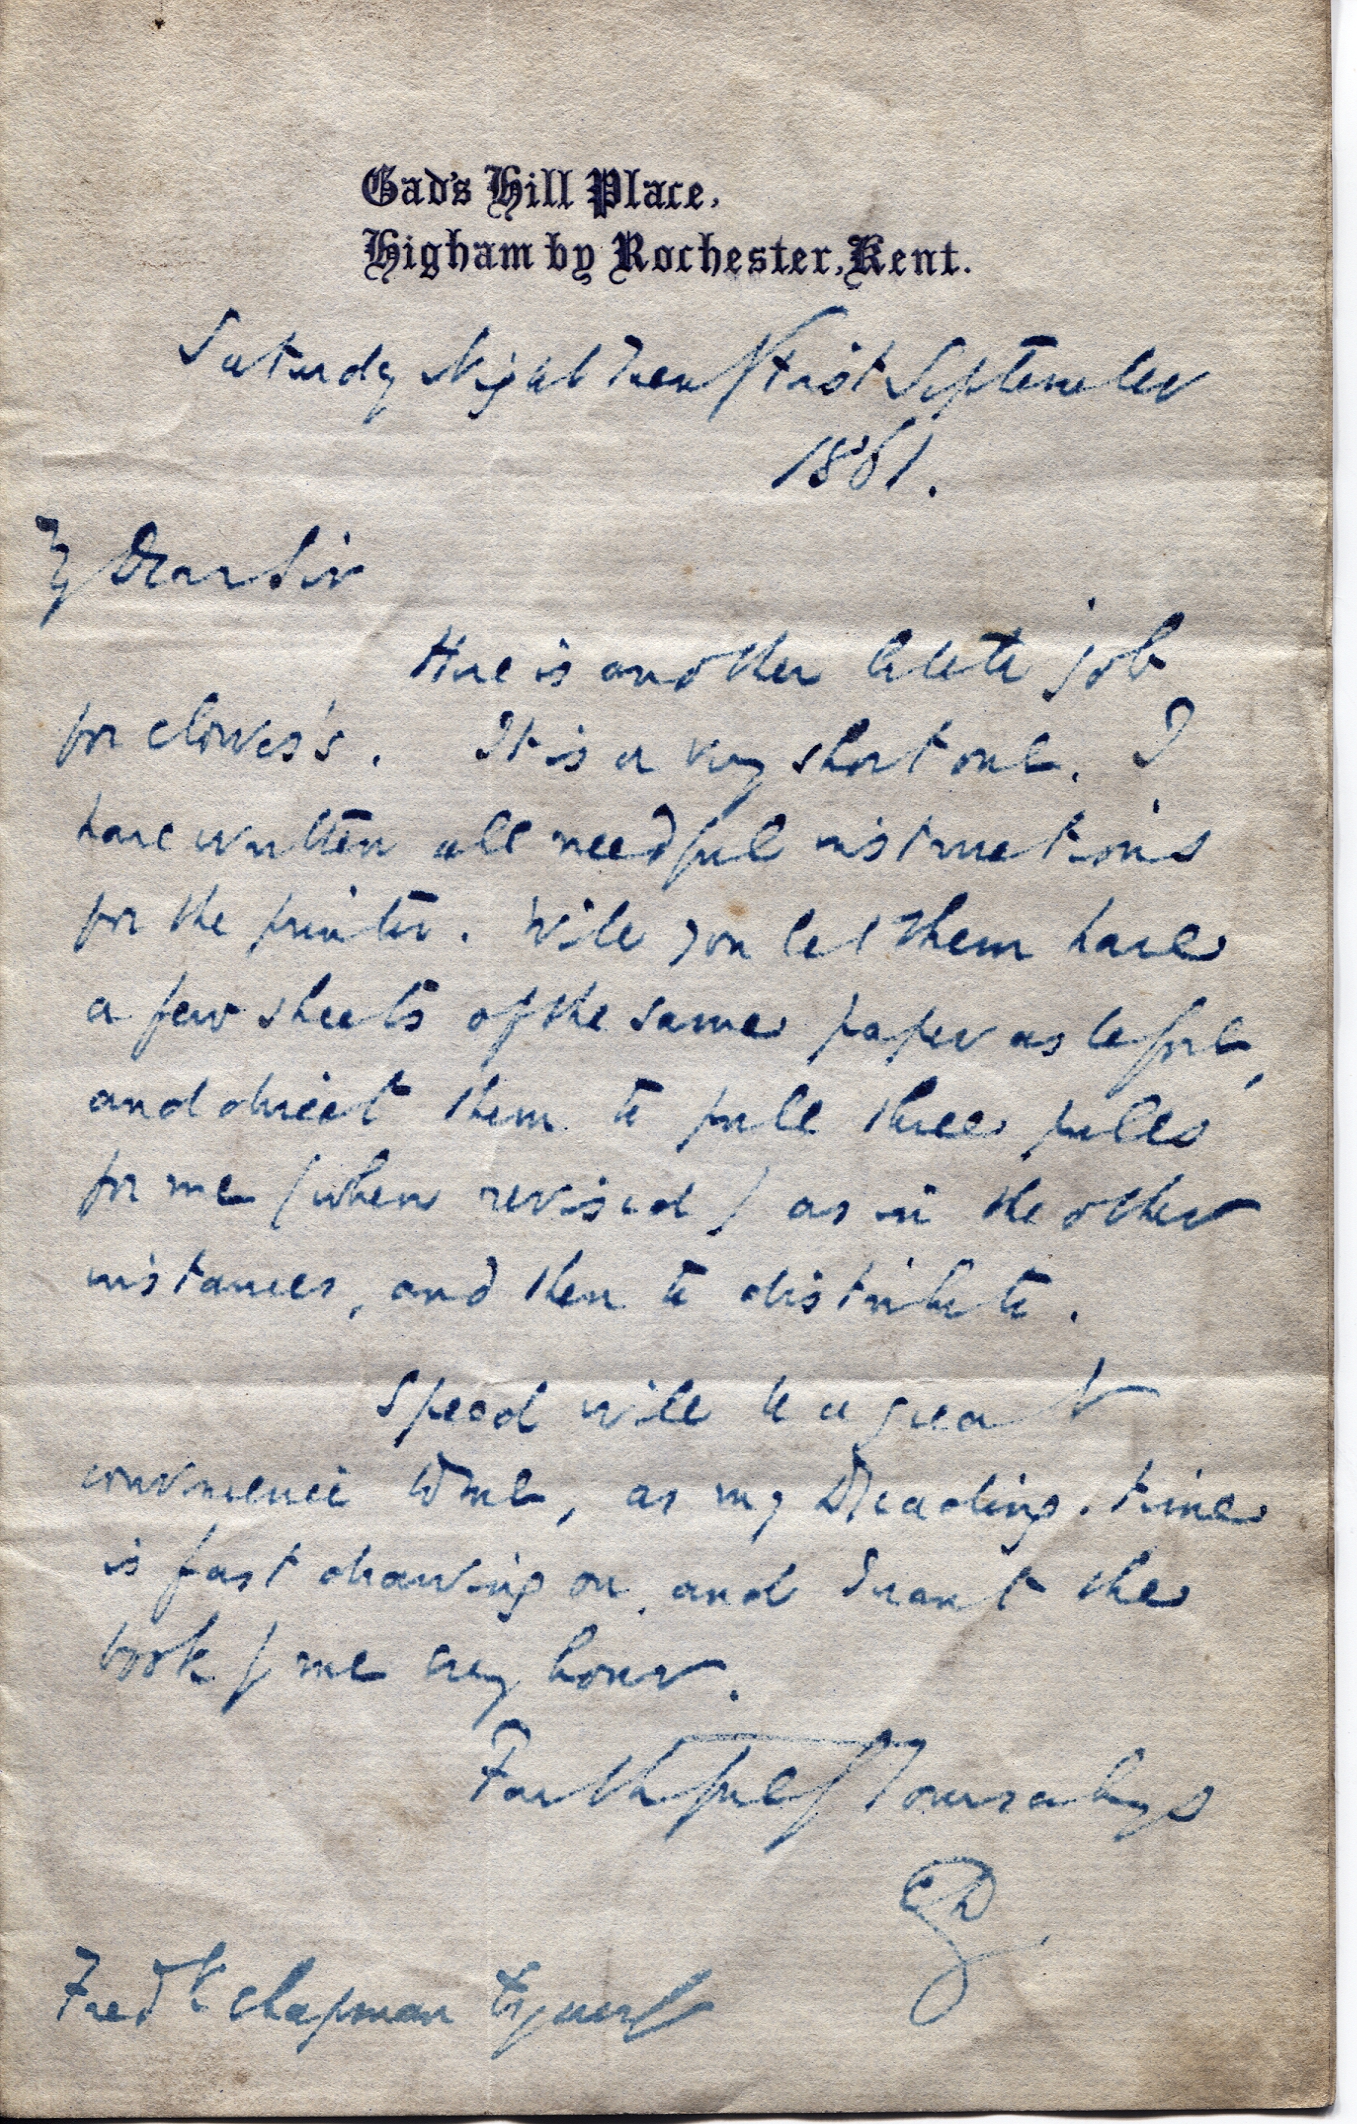 Gad's Hill Place,
Higham by Rochester, Kent.
Saturday Night Twenty First September
1861.
My Dear Sir
Here is another little job
for Clowes's. It is a very short one. I
have written all needful instructions
for the printer. Will you let them have
a few sheets of the same paper as before,
and direct them to pull three pulls
for me (when revised) as in the other
instances, and then to distribute.
Speed will be a great
convenience to me, as my Reading time
is fast drawing on, and I want the
book by me every hour.
Faithfully Yours always
CD
Fredk Chapman Esquire